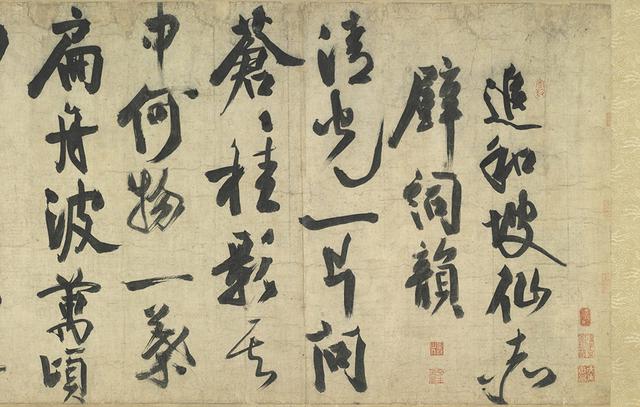 追和坡仙赤
壁詞韻
清光一片問
蒼〻桂影其
中何物一葉
扁舟波萬頃